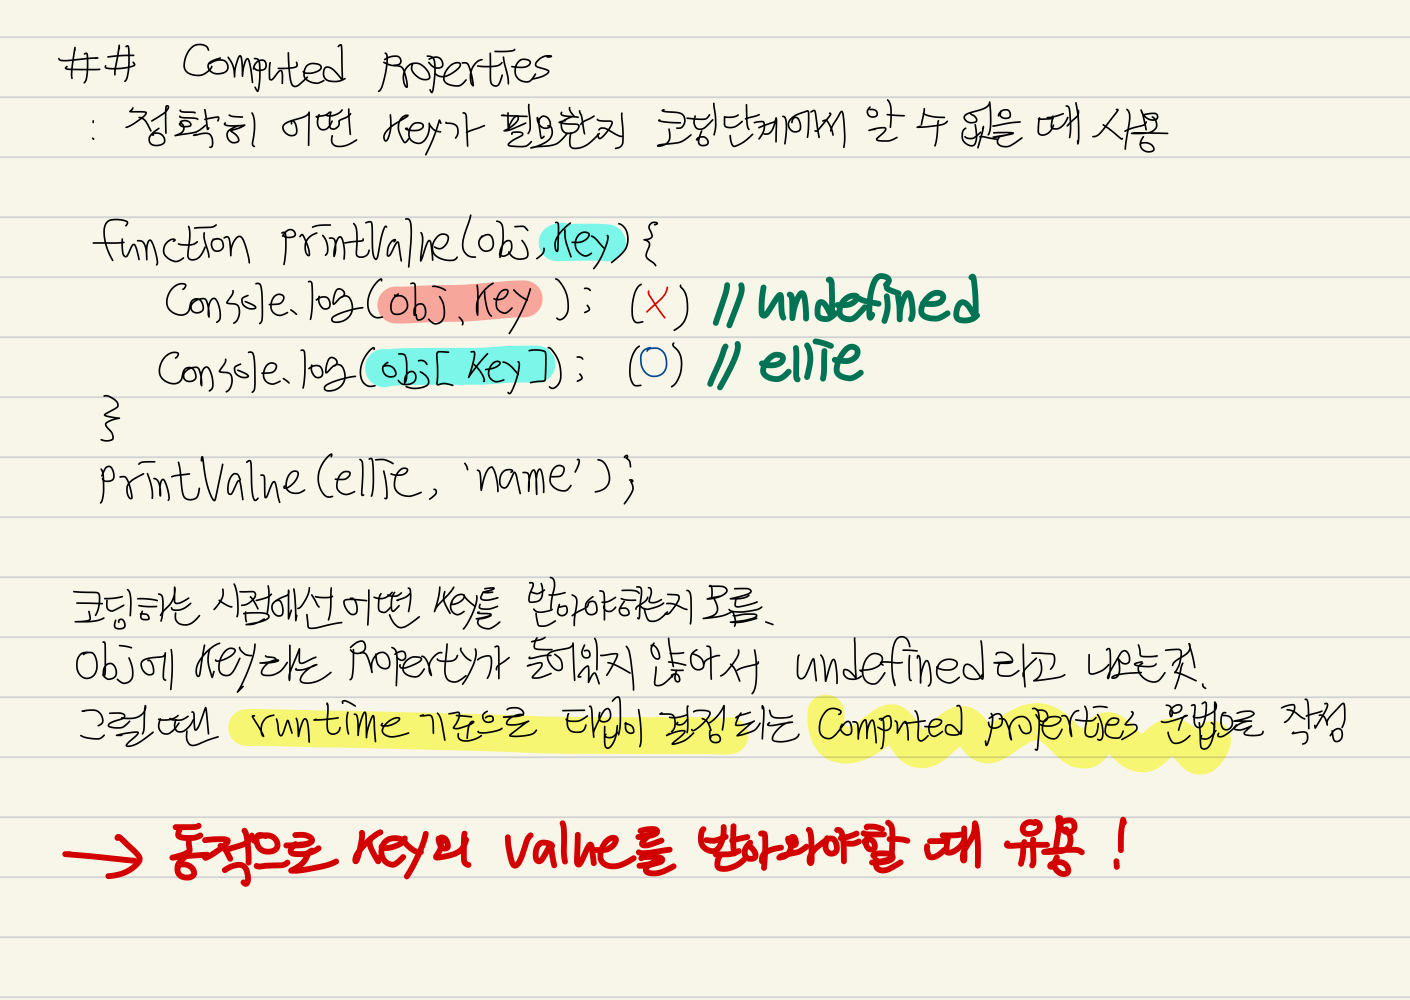 ## Computed Properties
: 정확히 어떤 key가 필요한지 코딩단계에서 알 수 없을 때 사용
function printValue(obj, key) {
console.log(obj.key); (X) // undefined
console.log(obj[key]); (O) // ellie
}
printValue(ellie, 'name');
코딩하는 시점에선 어떤 key를 받아야하는지 모름.
obj에 key라는 property가 들어있지 않아서 undefined라고 나오는것.
그럴땐 runtime 기준으로 타입이 결정되는 Computed properties 문법으로 작성
→ 동적으로 key의 value를 받아와야할 때 유용!